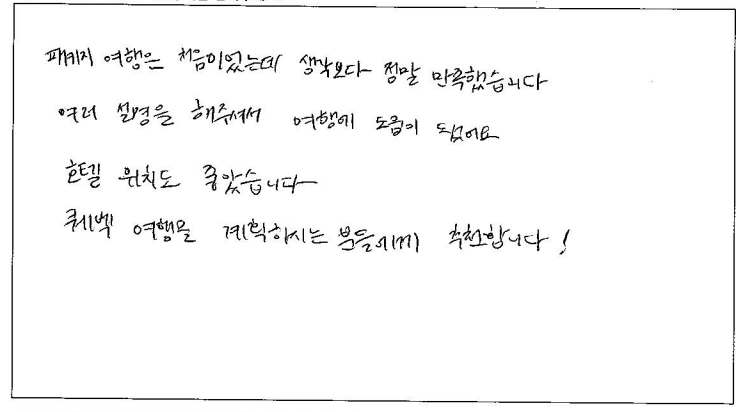 패키지 여행은 처음이었는데 생각보다 정말 만족했습니다
여러 설명을 해주셔서 여행에 도움이 되었어요
호텔 위치도 좋았습니다
퀘벡 여행을 계획하시는 분들에게 추천합니다!